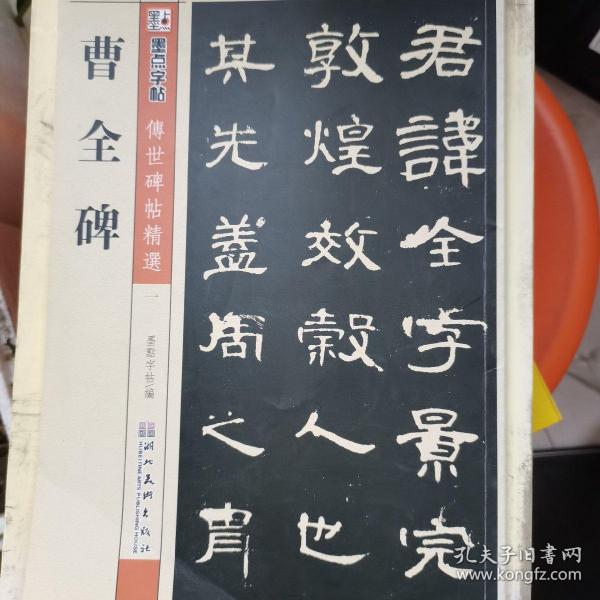 曹全碑
墨点字帖
傳世碑帖精選
一
墨點字帖/編
湖北美术出版社
HUBEI FINE ARTS PUBLISHING HOUSE
君諱全字景完
敦煌效穀人也
其先蓋周之胄
孔夫子旧书网
www.kongfz.com